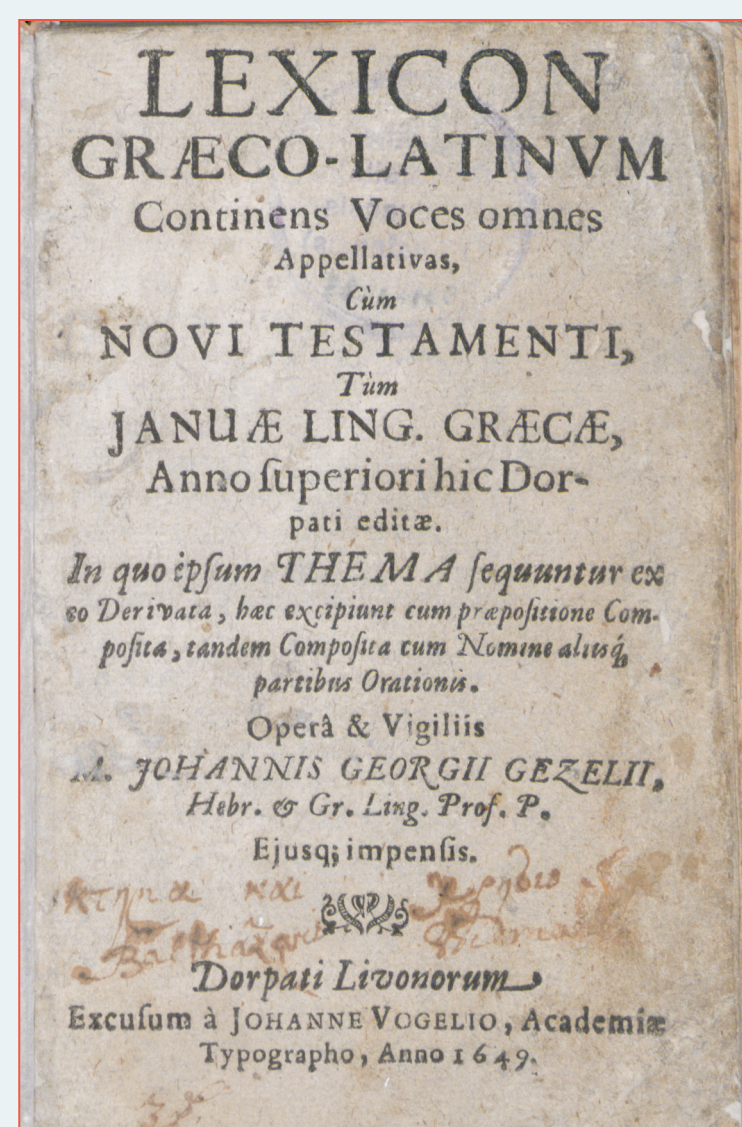 LEXICON
GRÆCO-LATINVM
Continens Voces omnes
Appellativas,
Cùm
NOVI TESTAMENTI,
Tùm
JANUÆ LING. GRÆCÆ,
Anno ſuperiori hic Dor-
pati editæ.
In quo ipſum THEMA ſequuntur ex
eo Derivata, hæc excipiunt cum præpoſitione Com-
poſita, tandem Compoſita cum Nomine aliisq́;
partibus Orationis.
Operâ & Vigiliis
M. JOHANNIS GEORGII GEZELII,
Hebr. & Gr. Ling. Prof. P.
Ejusq; impenſis.
κτημα και
Dorpati Livonorum
Excuſum à JOHANNE VOGELIO, Academiæ
Typographo, Anno 1649.